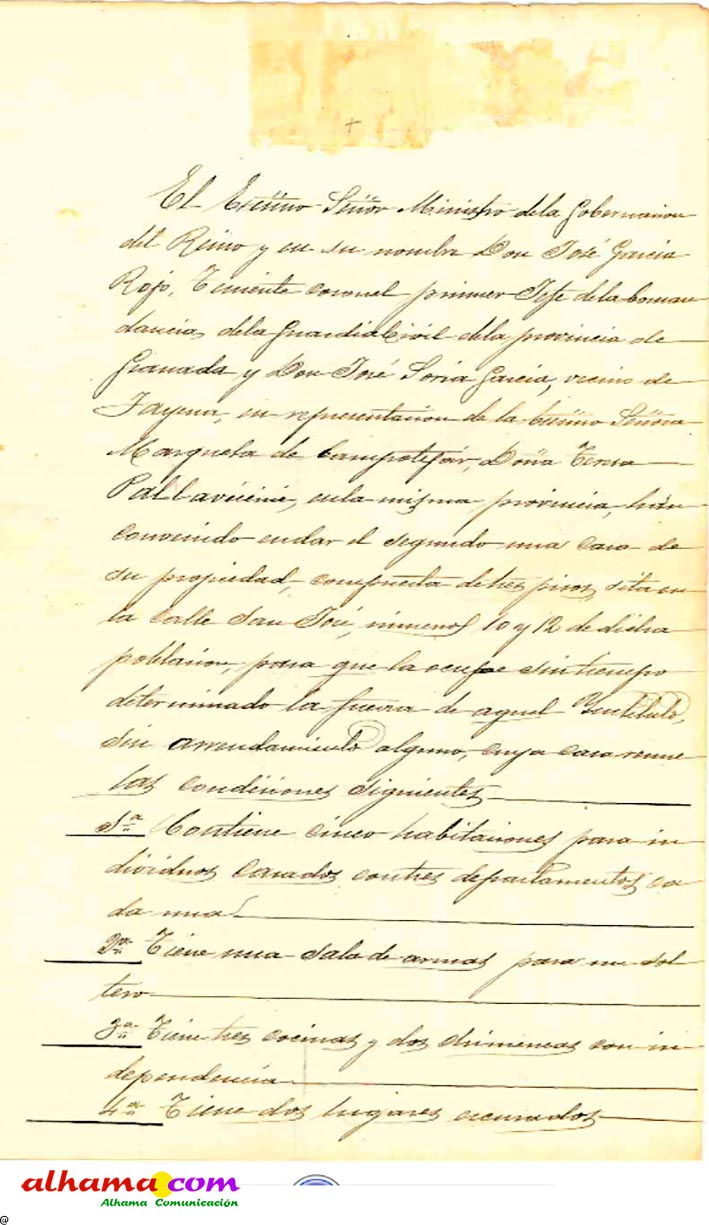 El Excmo Señor Ministro de la Gobernacion
del Reino y en su nombre Don José Garcia
Rojo, Teniente Coronel primer Jefe de la Coman
dancia, de la Guardia Civil de la provincia de
Granada y Don José Soria Garcia, vecino de
Jayena, en representacion de la Excmo Señora
Marquesa de Campotejar, Doña Teresa
Pallavicini, en la misma provincia, han
convenido en dar el segundo una casa de
su propiedad, compuesta de tres pisos, sita en
la calle San José, numeros 10 y 12 de dicha
poblacion, para que la ocupe sin tiempo
determinado la fuerza de aquel Instituto,
sin arrendamiento alguno, cuya casa reune
las condiciones siguientes
1ª Contiene cinco habitaciones para in
dividuos casados con tres departamentos ca
da una
2ª Tiene una sala de armas para un sol
tero
3ª Tiene tres cocinas y dos chimeneas con in
dependencia
4ª Tiene dos lugares escusados
alhama.com
Alhama Comunicación
@